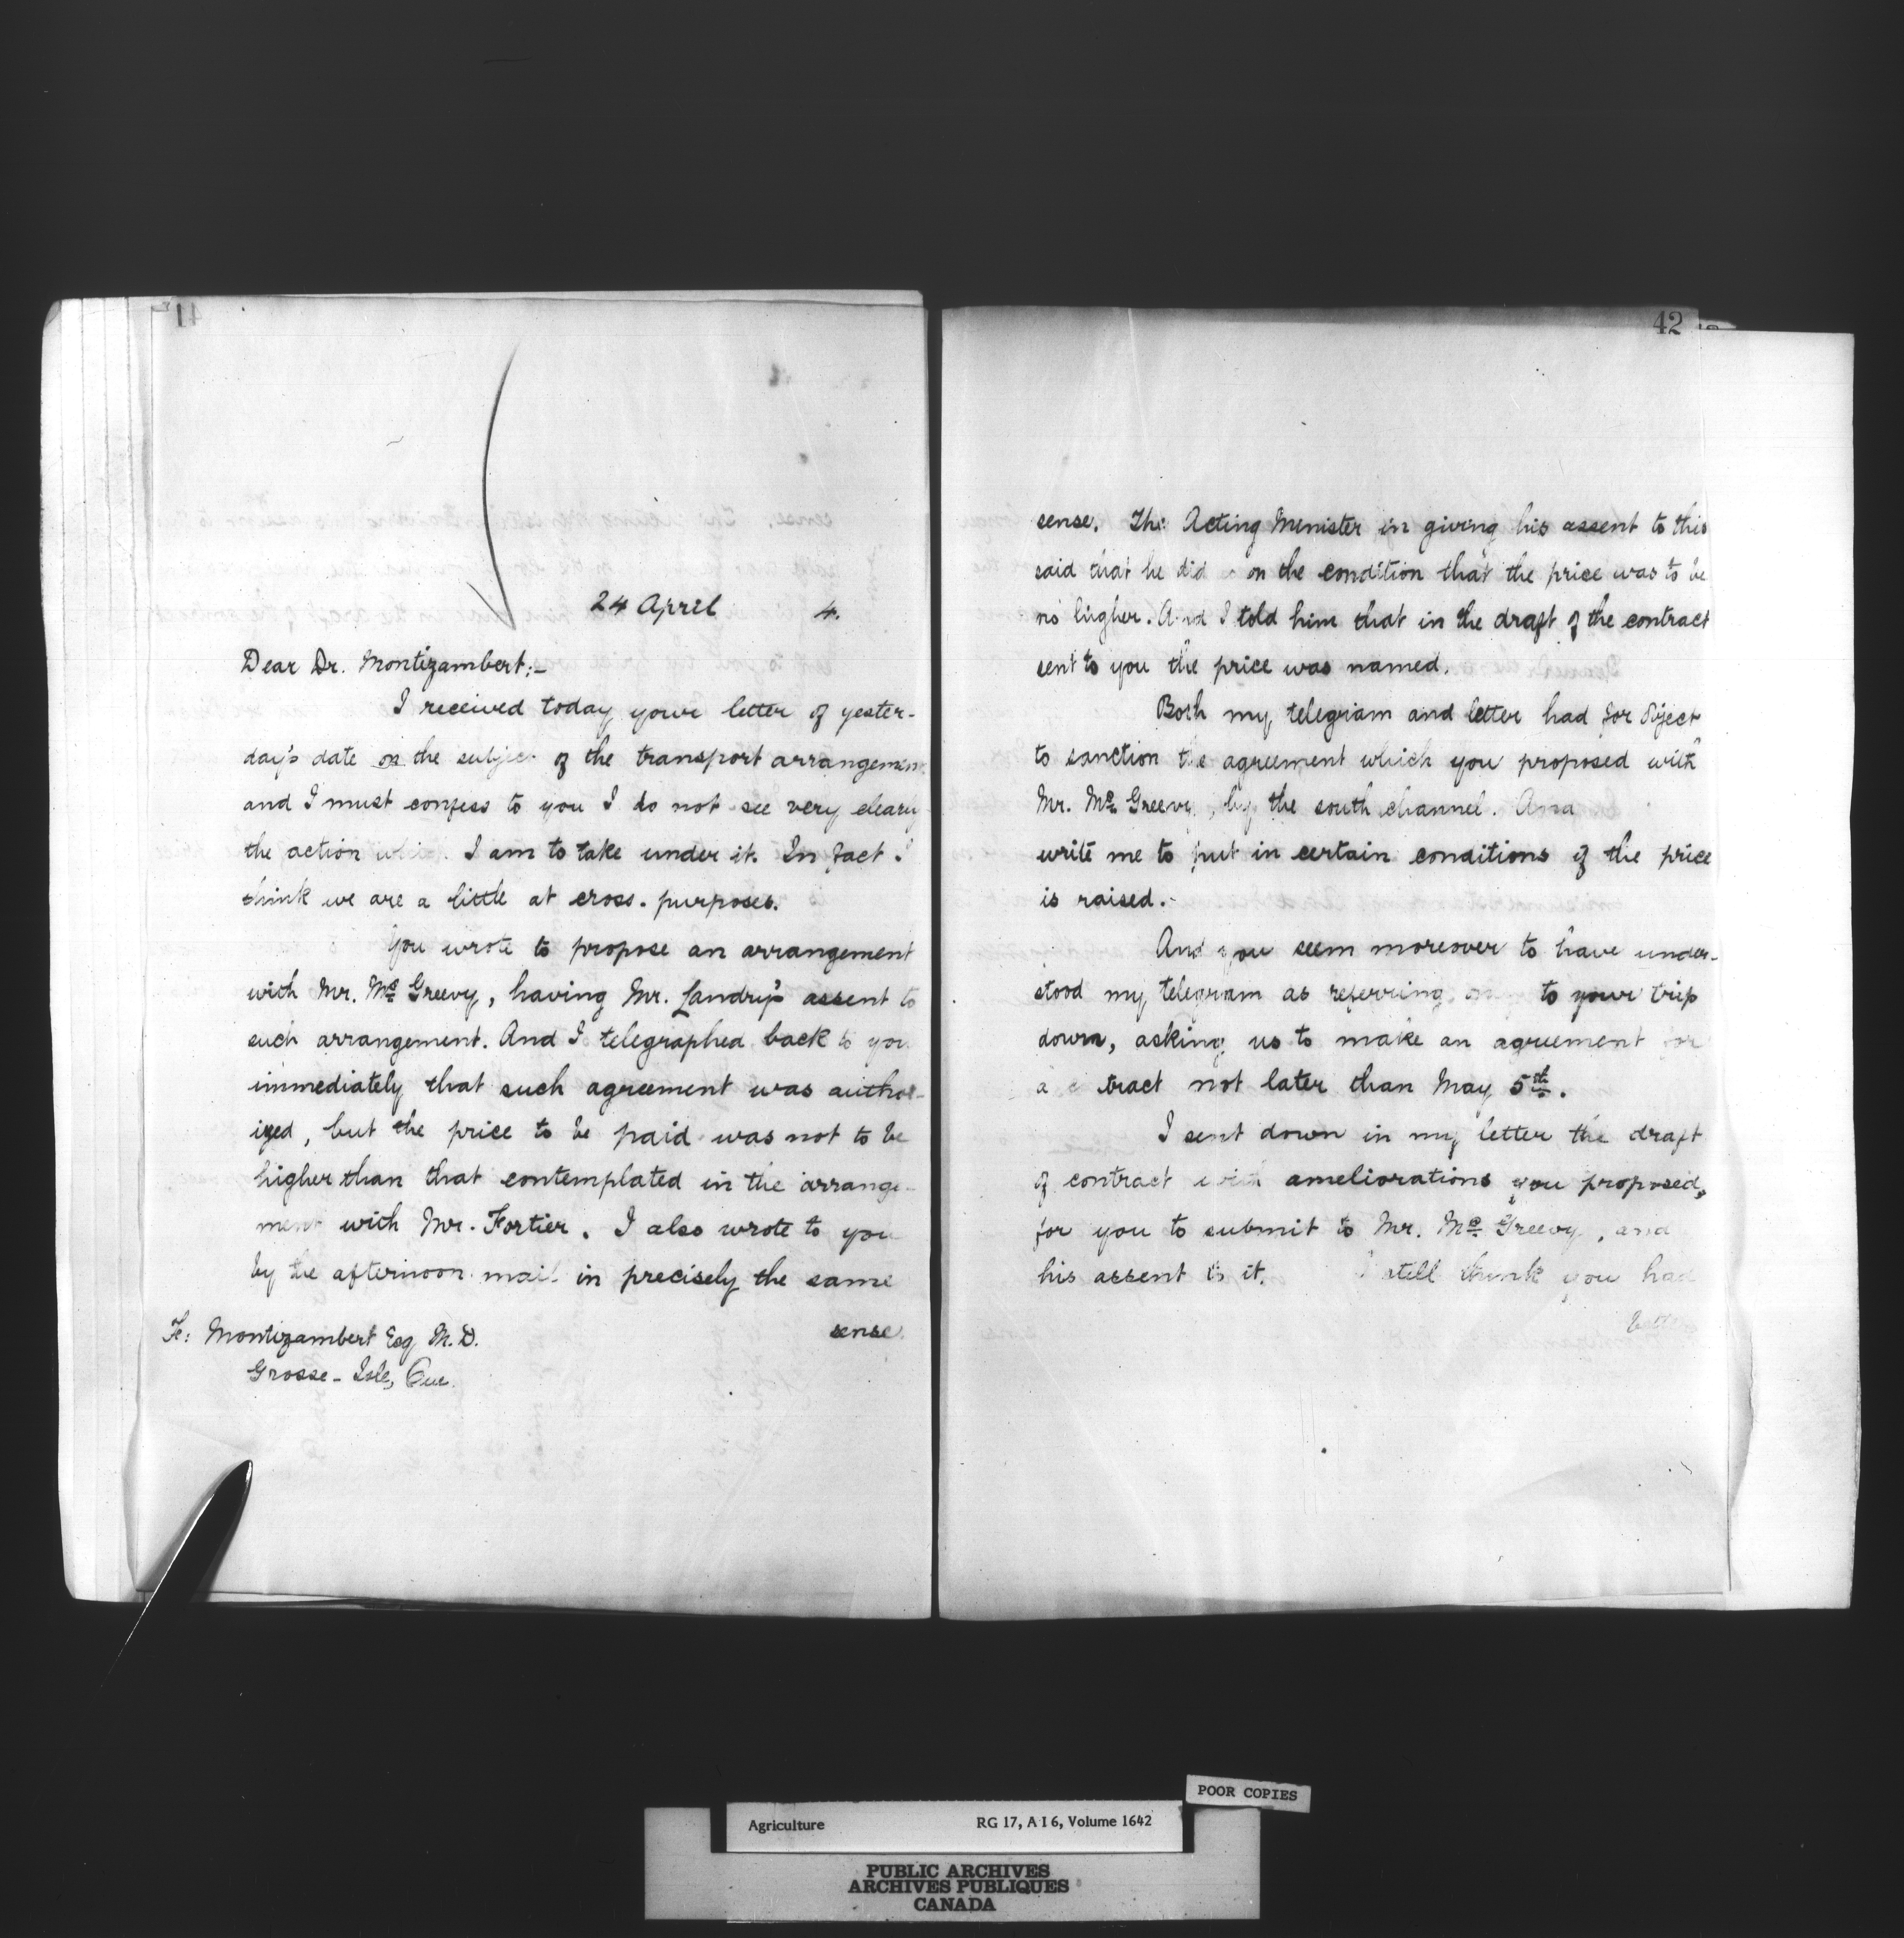 41
24 April 4.
Dear Dr. Montizambert:-
I received today your letter of yester-
day's date on the subject of the transport arrangement
and I must confess to you I do not see very clearly
the action which I am to take under it. In fact I
think we are a little at cross-purposes.
You wrote to propose an arrangement
with Mr. McGreevy, having Mr. Landry's assent to
such arrangement. And I telegraphed back to you
immediately that such agreement was author-
ized, but the price to be paid was not to be
higher than that contemplated in the arrange-
ment with Mr. Fortier. I also wrote to you
by the afternoon mail in precisely the same
sense.
F: Montizambert Esq M.D.
Grosse-Isle, Que.
42
sense. The Acting Minister in giving his assent to this
said that he did on the condition that the price was to be
no higher. And I told him that in the draft of the contract
sent to you the price was named.
Both my telegram and letter had for object
to sanction the agreement which you proposed with
Mr. McGreevy, by the south channel. And
write me to put in certain conditions if the price
is raised.
And you seem moreover to have under-
stood my telegram as referring to your trip
down, asking us to make an agreement for
a tract not later than May 5th.
I sent down in my letter the draft
of contract with ameliorations you proposed,
for you to submit to Mr. McGreevy, and
his assent to it. I still think you had
better
POOR COPIES
Agriculture RG 17, A I 6, Volume 1642
PUBLIC ARCHIVES
ARCHIVES PUBLIQUES
CANADA